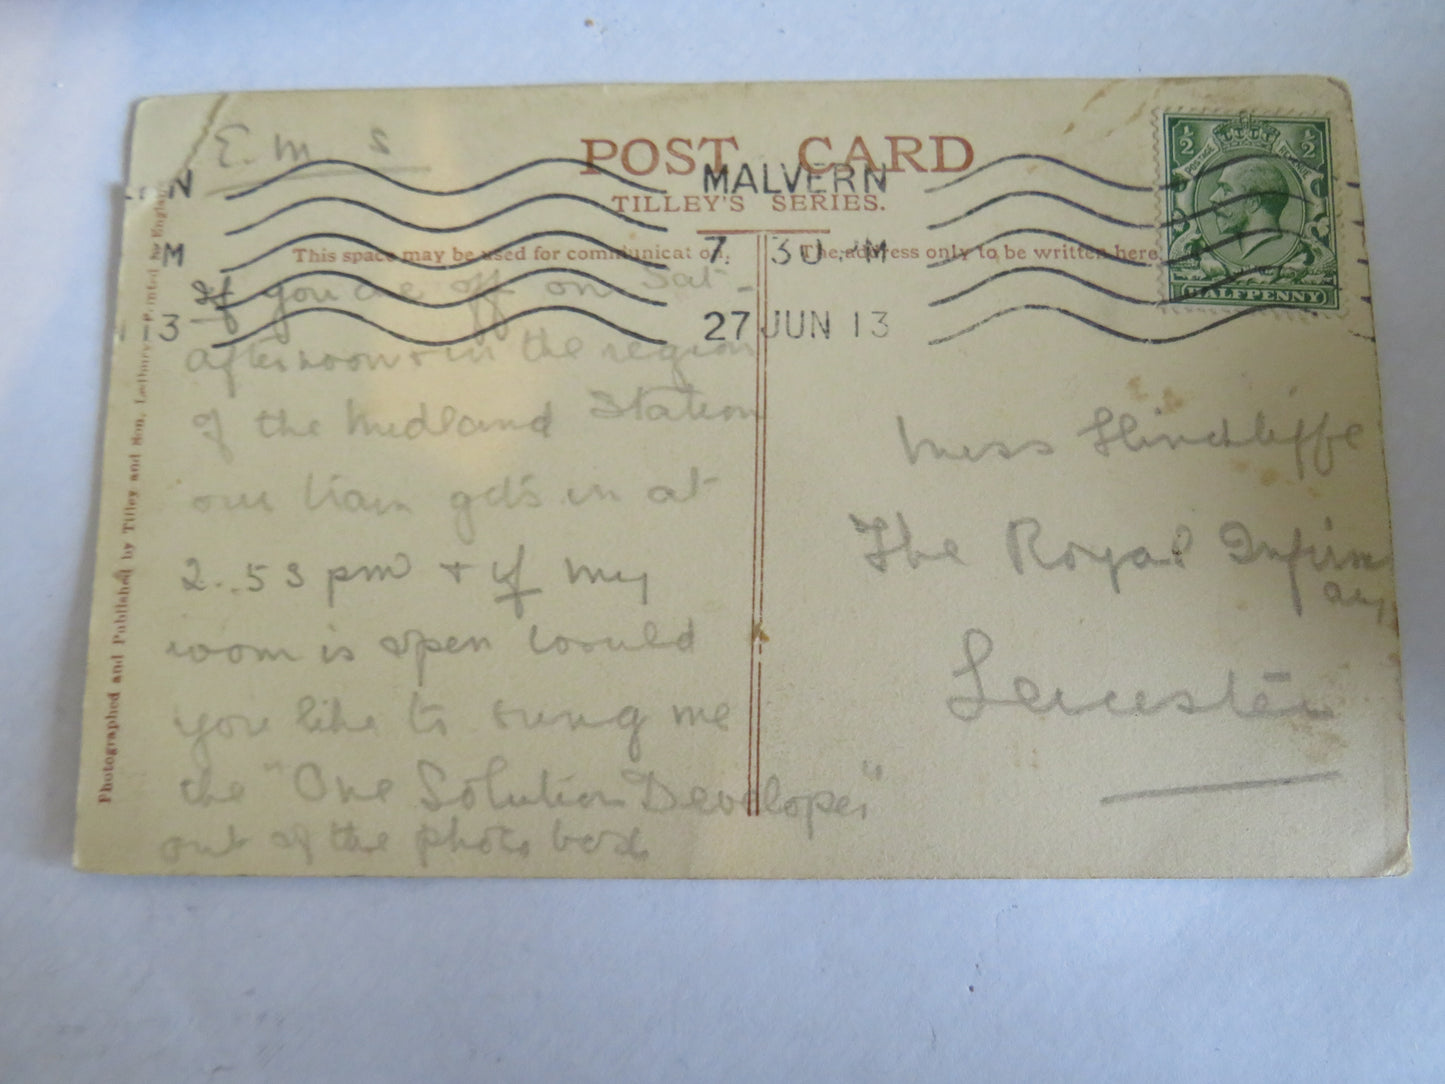 E. M. S
POST CARD
MALVERN
TILLEY'S SERIES.
7 30 M
27 JUN 13
N
M
13
½ ½
POSTAGE REVENUE
HALFPENNY
This space may be used for communication.
The address only to be written here.
If you are off on Sat-
afternoon & in the region
of the Midland Station
our train gets in at
2..53 pm & if my
room is open would
you like to bring me
the "One Solution Developer"
out of the photo box
Miss Hinchliffe
The Royal Infirm
ary,
Leicester
Photographed and Published by Tilley and Son, Ledbury. Printed in England